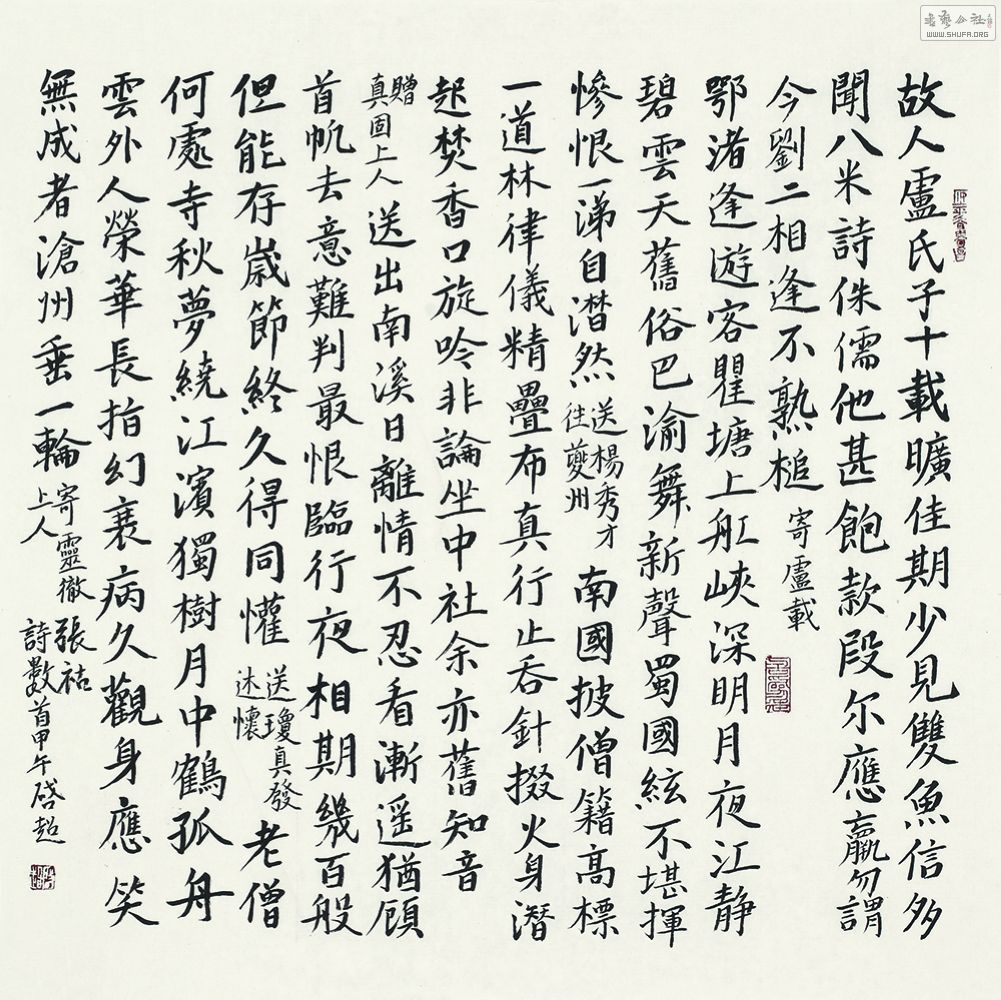 故人盧氏子十載曠佳期少見雙魚信多
聞八米詩侏儒他甚飽款段尔應羸勿謂
今劉二相逢不熟槌
寄盧載
鄂渚逢遊客瞿塘上舡峽深明月夜江静
碧雲天舊俗巴渝舞新聲蜀國絃不堪揮
慘恨一涕自潸然
送楊秀才
往夔州
南國披僧籍高標
一道林律儀精疊布真行止吞針掇火身潛
起焚香口旋吟非論坐中社余亦舊知音
贈
真固上人
送出南溪日離情不忍看漸遥猶顧
首帆去意難判最恨臨行夜相期幾百般
但能存歲節終久得同懽
送瓊真發
述懷
老僧
何處寺秋夢繞江濱獨樹月中鶴孤舟
雲外人榮華長指幻衰病久觀身應笑
無成者滄州垂一輪
寄靈徹
上人
張祜
詩數首甲午啓超
書藝公社
WWW.SHUFA.ORG